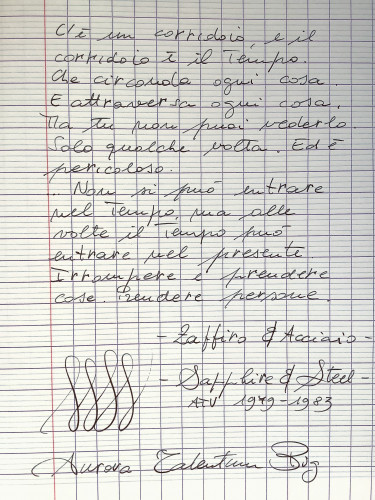 C'è un corridoio, e il
corridoio è il Tempo.
Che circonda ogni cosa.
E attraversa ogni cosa.
Ma tu non puoi vederlo.
Solo qualche volta. Ed è
pericoloso.
... Non si può entrare
nel Tempo, ma alle
volte il Tempo può
entrare nel presente.
Irrompere e prendere
cose. Prendere persone.
- Zaffiro & Acciaio -
- Sapphire & Steel -
ATV 1979-1983
Aurora Talentum